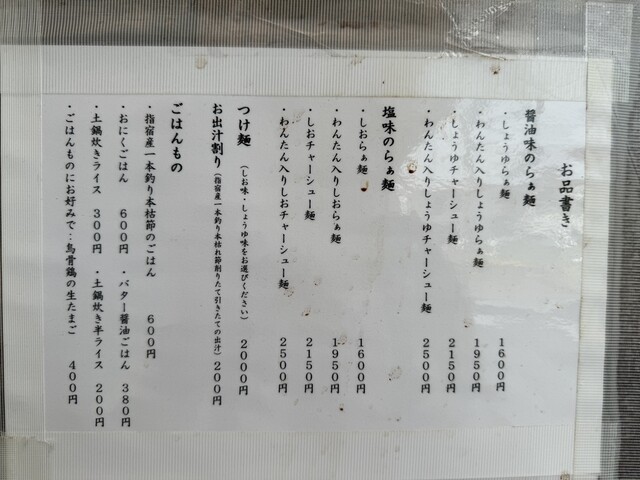 お品書き
醤油味のらぁ麺
・しょうゆらぁ麺 1600円
・わんたん入りしょうゆらぁ麺 1950円
・しょうゆチャーシュー麺 2150円
・わんたん入りしょうゆチャーシュー麺 2500円
塩味のらぁ麺
・しおらぁ麺 1600円
・わんたん入りしおらぁ麺 1950円
・しおチャーシュー麺 2150円
・わんたん入りしおチャーシュー麺 2500円
つけ麺 (しお味・しょうゆ味をお選びください) 2000円
お出汁割り (指宿産一本釣り本枯れ節削りたて引きたての出汁) 200円
ごはんもの
・指宿産一本釣り本枯節のごはん 600円
・おにくごはん 600円 ・バター醤油ごはん 380円
・土鍋炊きライス 300円 ・土鍋炊き半ライス 200円
・ごはんものにお好みで：烏骨鶏の生たまご 400円